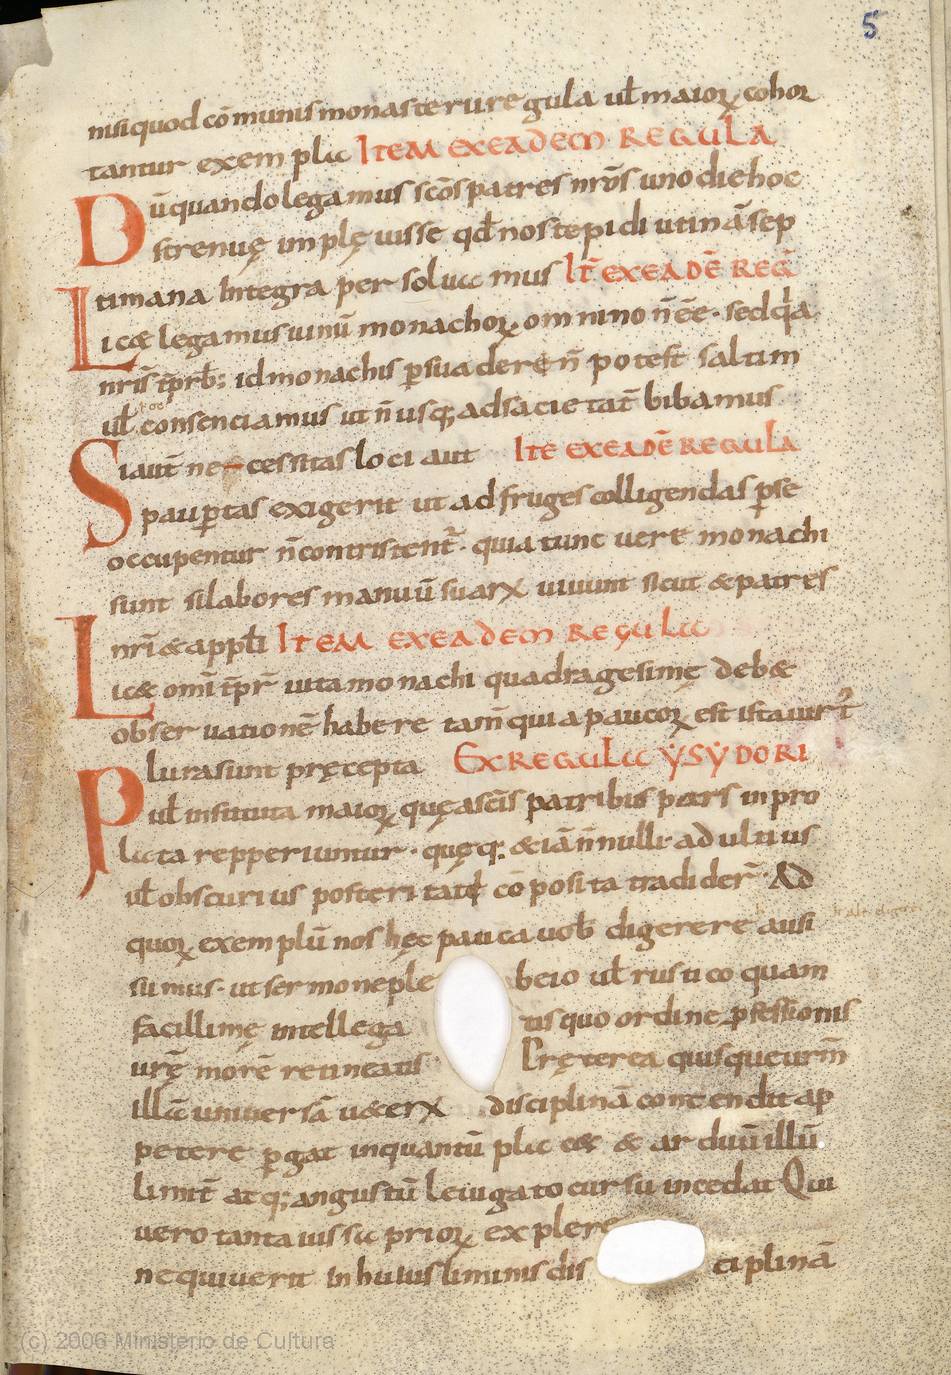 5
nisi quod cōmunis monasterii regula ut̄ maioꝝ cohor
tantur exempla Item ex eadem regula
Dū quando legamus scōs patres nr̄os uno die hoc
strenuę implęuisse qđ nos tepidi utinā sep
timana integra persoluamus It̄ ex eadē reḡ
Licæ legamus uinū monachoꝝ omnino n̄ ēē · sed q̄a
nr̄is tp̄rb; id monachis ꝑsuaderę n̄ potest saltim
ut̄ consenciamus ut n̄ usq; ad sacietat̄ bibamus
Si aut̄ necessitas loci aut Itē ex eadē regula
pauꝑtas exigerit ut ad fruges colligendas ꝑse
occupentur n̄ contristent̄ · quia tunc uere monachi
sunt si labores manuū suarꝝ uiuunt sicut & patres
nr̄i & apptl̄i Item ex eadem regula
Lic& omi tp̄r̄ uita monachi quadragesimę deb&
obseruationē habere tam̄ qui a paucoꝝ est ista uirt̄
Plura sunt pręcepta Ex regula ysydori
ut̄ instituta maioꝝ quę a scīs patribus sparsim pro
lata repperiuntur · quęq; & iā n̄nulli · ad ultius
ut̄ obscurius posteritati cōposita tradider̄ · Ad
quoꝝ exemplū nos hęc pauca uob̄ digerere ausi
sumus · ut sermone ple beio ut̄ rustico quam
facillimę intellega tis quo ordine ꝓfessionis
ur̄ę morē retineatis Pręterea quisque ur̄m̄
illā uniuersā uæerꝝ disciplinā contendit ap
petere ꝑgat inquantū plac e& & arduū illū
limit̄ atq; angustū leiugato cursu incedat Qui
uero tanta iussa prioꝝ explere
nequiuerit in huius liminis dis ciplinā
(c) 2006 Ministerio de Cultura